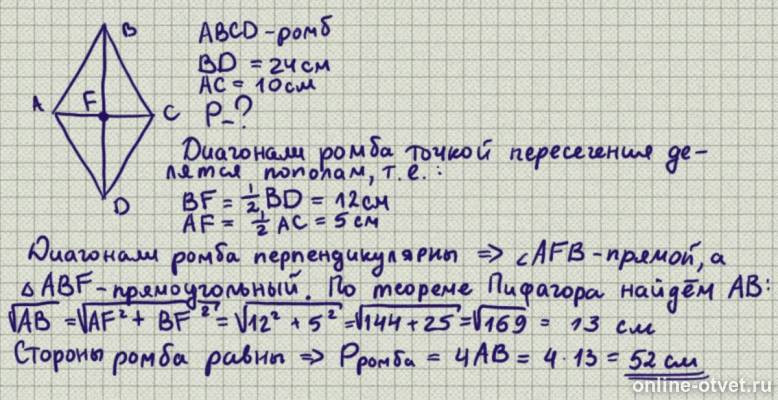 B
ABCD - ромб
BD = 24 см
AC = 10 см
A F C P - ?
D
Диагонали ромба точкой пересечения де-
лятся пополам, т.е.:
BF = 1/2 BD = 12 см
AF = 1/2 AC = 5 см
Диагонали ромба перпендикулярны => ∠AFB - прямой, а
△ABF - прямоугольный. По теореме Пифагора найдём AB:
√AB = √AF² + BF² = √12² + 5² = √144 + 25 = √169 = 13 см
Стороны ромба равны => Pромба = 4AB = 4 · 13 = 52 см
online-otvet.ru